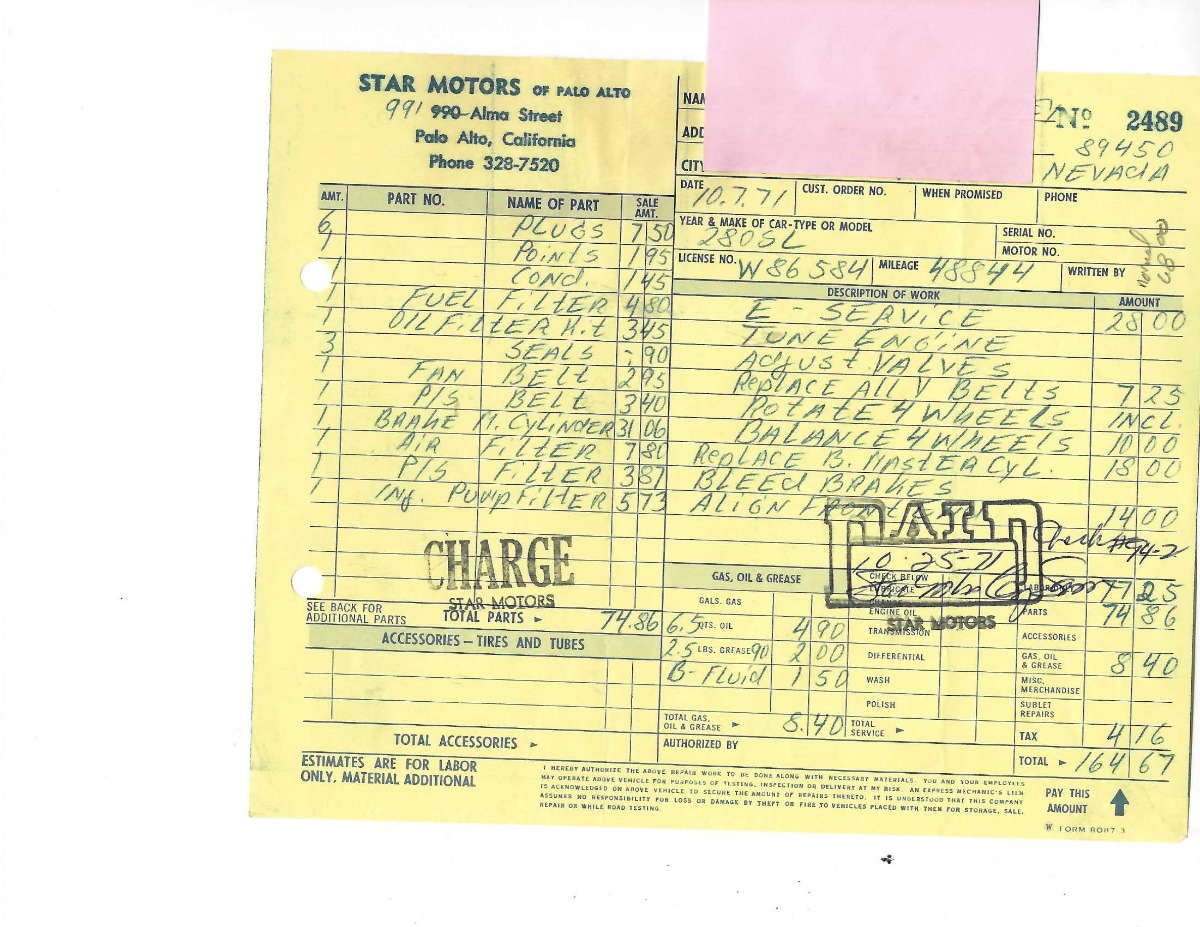 STAR MOTORS OF PALO ALTO
991 990 Alma Street
Palo Alto, California
Phone 328-7520
NAM
ADD
CITY
No 2489
89450
NEVADA
DATE 10.7.71 CUST. ORDER NO. WHEN PROMISED PHONE
YEAR & MAKE OF CAR-TYPE OR MODEL 280SL
SERIAL NO.
MOTOR NO.
LICENSE NO. W86 584 MILEAGE 48844 WRITTEN BY
AMT. PART NO. NAME OF PART SALE AMT.
6 PLUGS 7 50
1 POINTS 1 95
1 COND. 1 45
1 FUEL FILTER 4 80
1 OIL FILTER KIT 3 45
3 SEALS - 90
1 FAN BELT 2 95
1 P/S BELT 3 40
1 BRAKE M. CYLINDER 31 06
1 AIR FILTER 7 80
1 P/S FILTER 3 87
1 INJ. PUMP FILTER 5 73
CHARGE
STAR MOTORS
SEE BACK FOR ADDITIONAL PARTS TOTAL PARTS 74.86
ACCESSORIES – TIRES AND TUBES
TOTAL ACCESSORIES
ESTIMATES ARE FOR LABOR
ONLY, MATERIAL ADDITIONAL
DESCRIPTION OF WORK AMOUNT
E - SERVICE 28 00
TUNE ENGINE
ADJUST VALVES
REPLACE ALL V BELTS 7 25
ROTATE 4 WHEELS INCL.
BALANCE 4 WHEELS 10 00
REPLACE B. MASTER CYL. 18 00
BLEED BRAKES
ALIGN FRONT 14 00
PAID
10-25-71
STAR MOTORS
GAS, OIL & GREASE
GALS. GAS
6.5 QTS. OIL 4 90
2.5 LBS. GREASE 90 2 00
B-Fluid 1 50
TOTAL GAS, OIL & GREASE 8.40
CHECK BELOW
LUBRICATE
CHANGE ENGINE OIL
TRANSMISSION
DIFFERENTIAL
WASH
POLISH
TOTAL SERVICE
AUTHORIZED BY
77 25
PARTS 74 86
ACCESSORIES
GAS, OIL & GREASE 8 40
MISC. MERCHANDISE
SUBLET REPAIRS
TAX 4 16
TOTAL 164 67
I HEREBY AUTHORIZE THE ABOVE REPAIR WORK TO BE DONE ALONG WITH NECESSARY MATERIALS. YOU AND YOUR EMPLOYEES
MAY OPERATE ABOVE VEHICLE FOR PURPOSES OF TESTING, INSPECTION OR DELIVERY AT MY RISK. AN EXPRESS MECHANIC'S LIEN
IS ACKNOWLEDGED ON ABOVE VEHICLE TO SECURE THE AMOUNT OF REPAIRS THERETO. IT IS UNDERSTOOD THAT THIS COMPANY
ASSUMES NO RESPONSIBILITY FOR LOSS OR DAMAGE BY THEFT OR FIRE TO VEHICLES PLACED WITH THEM FOR STORAGE, SALE,
REPAIR OR WHILE ROAD TESTING.
PAY THIS
AMOUNT
FORM ROB7 3